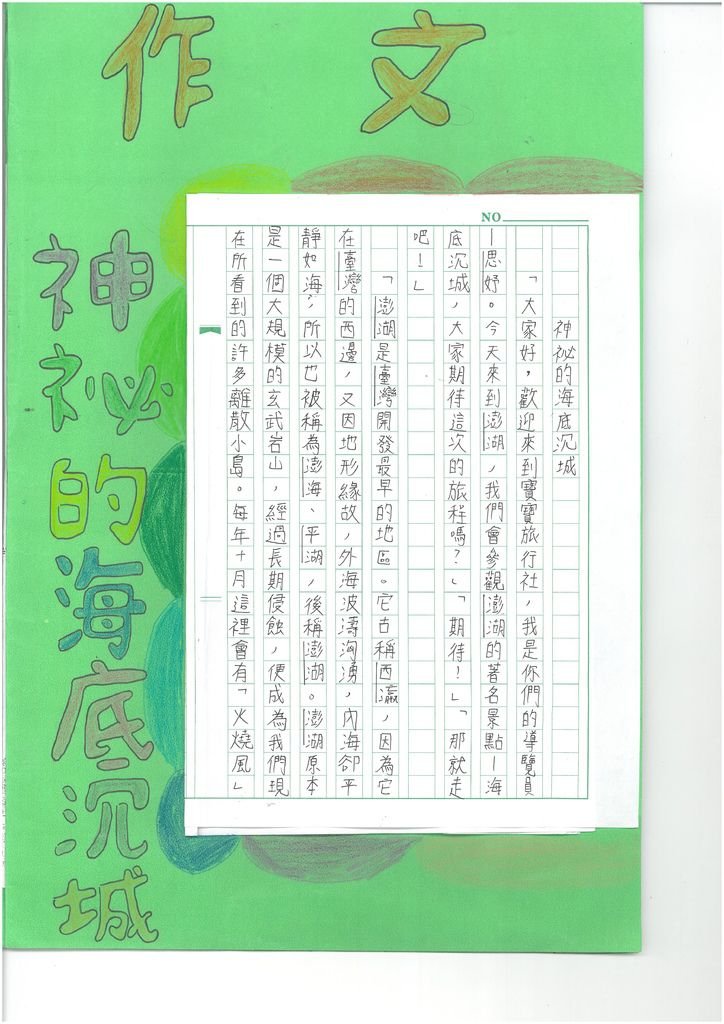 作文
神祕的海底沉城
NO
神祕的海底沉城
「大家好，歡迎來到寶寶旅行社，我是你們的導覽員
—思妤。今天來到澎湖，我們會參觀澎湖的著名景點—海
底沉城，大家期待這次的旅程嗎？」「期待！」「那就走
吧！」
「澎湖是臺灣開發最早的地區。它古稱西瀛，因為它
在臺灣的西邊，又因地形緣故，外海波濤洶湧，內海卻平
靜如海，所以也被稱為澎海、平湖，後稱澎湖。澎湖原本
是一個大規模的玄武岩山，經過長期侵蝕，便成為我們現
在所看到的許多離散小島。每年十月這裡會有「火燒風」